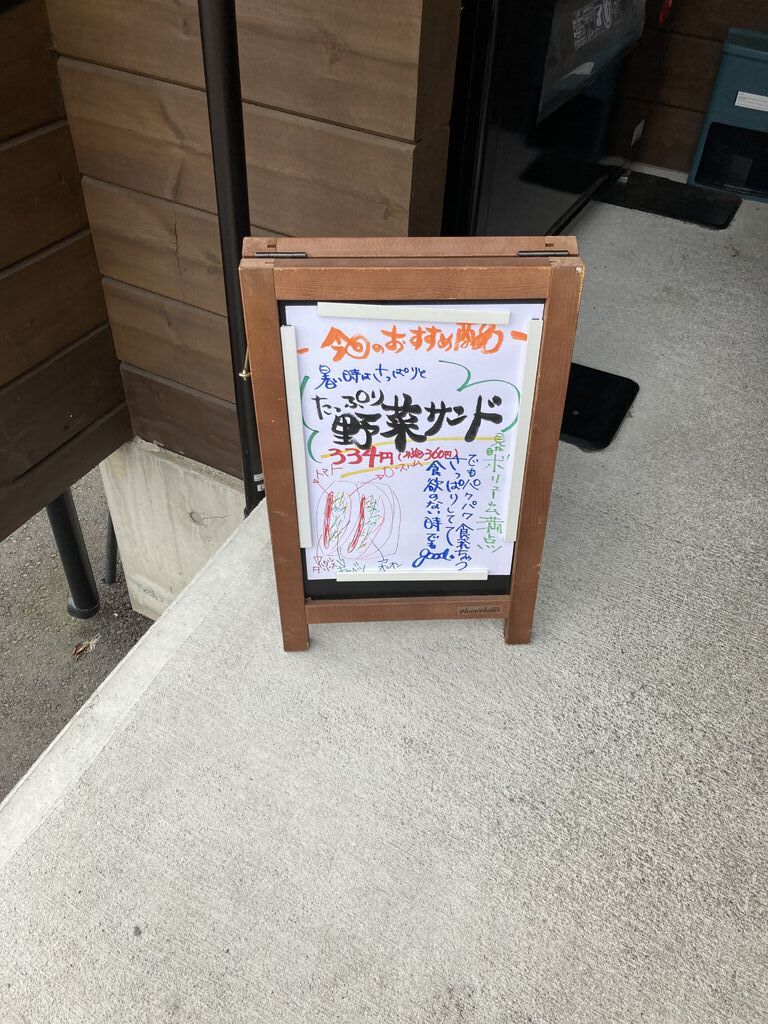 今日のおすすめ
暑い時はさっぱりと
たっぷり
野菜サンド
334円(税込360円)
トマト
ロースハム
ボリューム満点
でもパクパク食べれちゃう
さっぱりしてて
食欲のない時でも
good。
キャベツ
WoodWorks